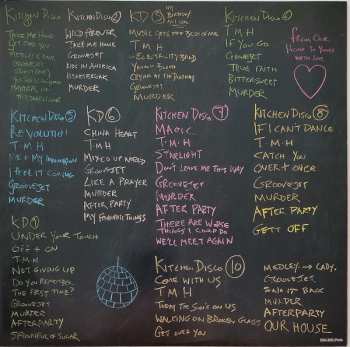 Kitchen Disco
Take Me Home
Get Over You
Kitchen Disco 2
Wild Forever
Take Me Home
Groovejet
Murder
KD 3
My Birthday
Music Gets the Best of Me
T M H
Crying at the Discoteque
Groovejet
Murder
Kitchen Disco 4
T M H
If You Go
Groovejet
True Faith
Bittersweet
Murder
From Our
Home to Yours
With Love
Kitchen Disco 5
Revolution
T M H
Me + My Imagination
I Feel It Coming
Groovejet
Murder
KD 6
China Heart
T M H
Mixed Up World
Groovejet
Like a Prayer
Murder
After Party
My Favourite Things
Kitchen Disco 7
Magic
T M H
Starlight
Don't Leave Me This Way
Groovejet
Murder
After Party
There Are Worse
Things I Could Do
We'll Meet Again
Kitchen Disco 8
If I Can't Dance
T M H
Catch You
Over + Over
Groovejet
Murder
After Party
Get Off
KD 9
Under Your Touch
Off + On
T M H
Not Giving Up
Do You Remember
The First Time?
Groovejet
Murder
Afterparty
Spoonful of Sugar
Kitchen Disco 10
Come With Us
T M H
Today the Sun's on Us
Walking on Broken Glass
Get Over You
Medley → Lady,
Groovejet
Sing It Back
Murder
Afterparty
Our House